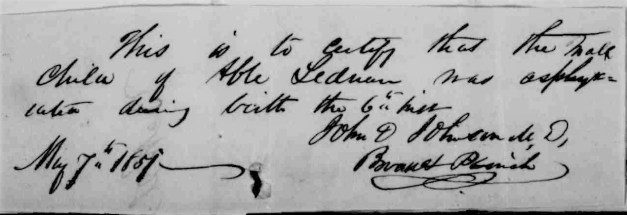 This is to certify that the male
child of Able Lednum was asphyx=
iated during birth the 6th inst
John D Johnson M, D,
May 7th 1887